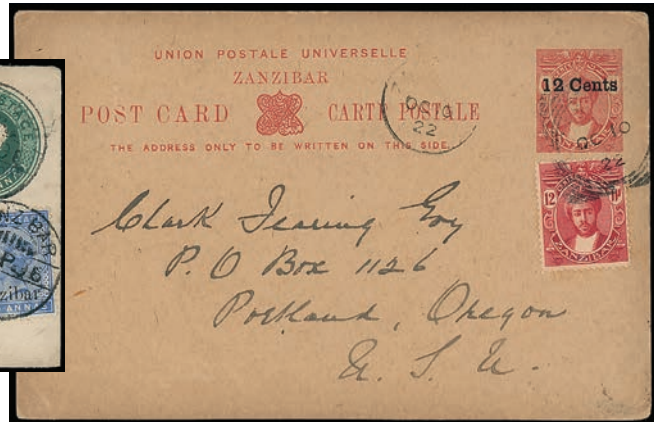 UNION POSTALE UNIVERSELLE
ZANZIBAR
POST CARD CARTE POSTALE
THE ADDRESS ONLY TO BE WRITTEN ON THIS SIDE.
12 Cents
OC 10
22
OC 10
22
12
ZANZIBAR
Clark Fearing Esq
P. O Box 1126
Portland, Oregon
U. S. A.